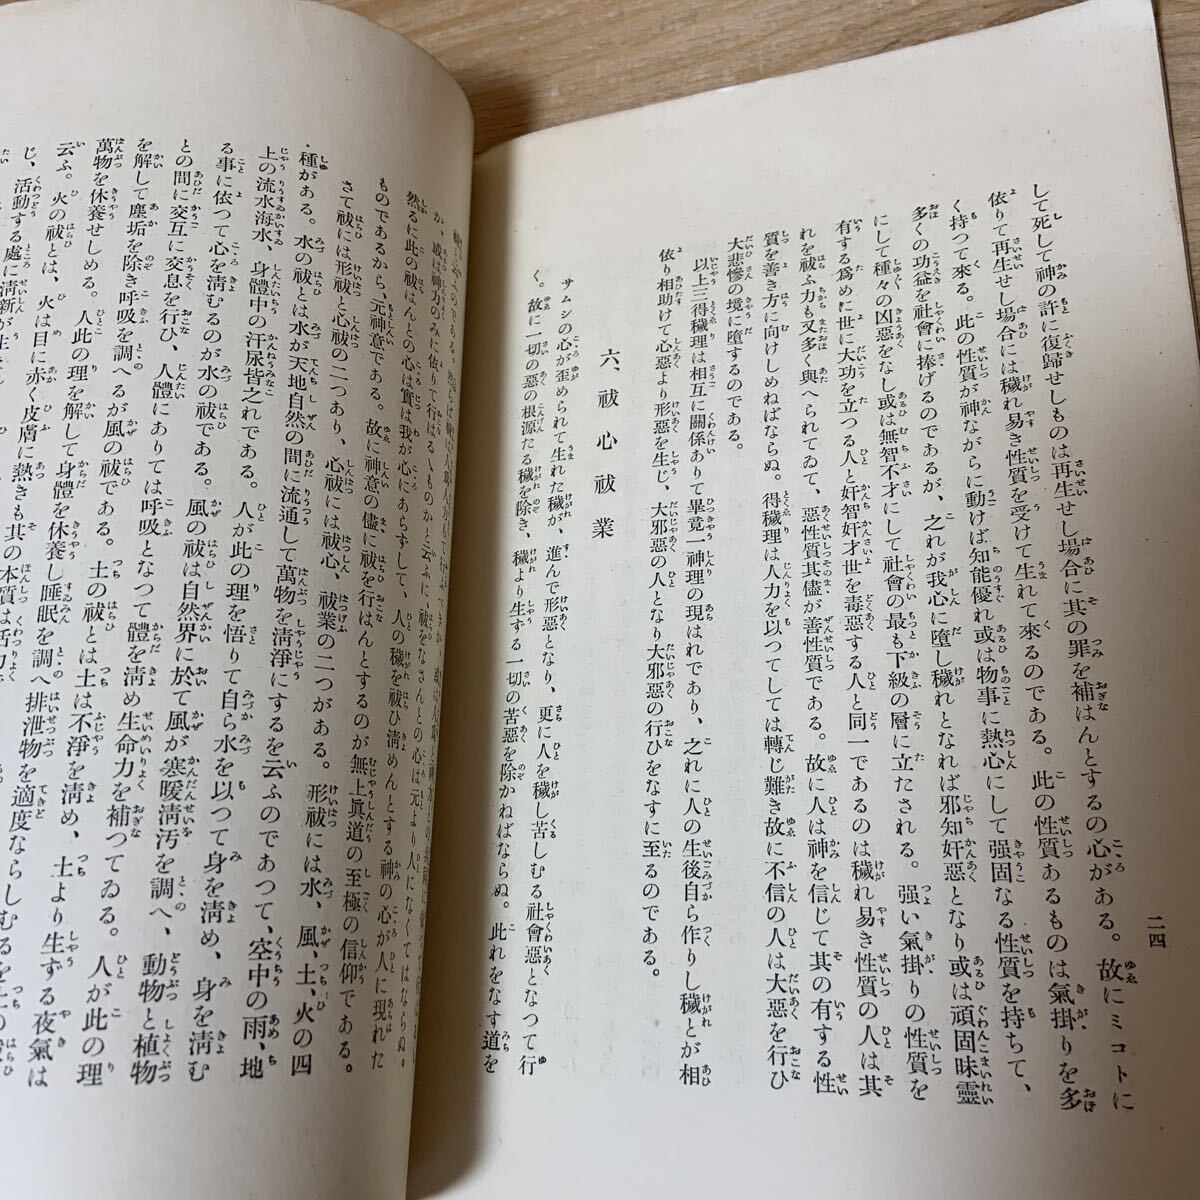 二四
して死して神の許に復歸せしものは再生せし場合に其の罪を補はんとするの心がある。故にミコトに
依りて再生せし場合には穢れ易き性質を受けて生れて來るのである。此の性質あるものは氣掛りを多
く持つて來る。此の性質が神ながらに動けば知能優れ或は物事に熱心にして强固なる性質を持ちて、
多くの功益を社會に捧げるのであるが、之れが我心に墮し穢れとなれば邪知奸惡となり或は頑固昧靈
にして種々の凶惡をなし或は無智不才にして社會の最も下級の層に立たされる。强い氣掛りの性質を
有する爲めに世に大功を立つる人と奸智奸才世を毒惡する人と同一であるのは穢れ易き性質の人は其
れを祓ふ力も又多く與へられてゐて、惡性質其儘が善性質である。故に人は神を信じて其の有する性
質を善き方に向けしめねばならぬ。得穢理は人力を以つてしては轉じ難き故に不信の人は大惡を行ひ
大悲慘の境に墮するのである。
以上三得穢理は相互に關係ありて畢竟一神理の現はれであり、之れに人の生後自ら作りし穢とが相
依り相助けて心惡より形惡を生じ、大邪惡の人となり大邪惡の行ひをなすに至るのである。
六、祓心祓業
サムシの心が歪められて生れた穢が、進んで形惡となり、更に人を穢し苦しむる社會惡となつて行
く。故に一切の惡の根源たる穢を除き、穢より生ずる一切の苦惡を除かねばならぬ。此れをなす道を
か、或は神力のみに依りて行はるゝものかと云ふに、祓をなさんとの心は元より人になくてはならぬ。
然るに此の祓はんとの心は實は我が心にあらずして、人の穢を祓ひ淸めんとする神の心が人に現れた
ものであるから、元神意である。故に神意の儘に祓を行はんとするのが無上眞道の至極の信仰である。
さて祓には形祓と心祓の二つあり、心祓には祓心、祓業の二つがある。形祓には水、風、土、火の四
種がある。水の祓とは水が天地自然の間に流通して萬物を淸淨にするを云ふのであつて、空中の雨、地
上の流水海水、身體中の汗尿皆之れである。人が此の理を悟りて自ら水を以つて身を淸め、身を淸む
る事に依つて心を淸むるのが水の祓である。風の祓は自然界に於て風が寒暖淸汚を調へ、動物と植物
との間に交互に交息を行ひ、人體にありては呼吸となつて體を淸め生命力を補つてゐる。人が此の理
を解して塵垢を除き呼吸を調へるが風の祓である。土の祓とは土は不淨を淸め、土より生ずる夜氣は
萬物を休養せしめる。人此の理を解して身體を休養し睡眠を調へ排泄物を適度ならしむるを土の祓
云ふ。火の祓とは、火は目に赤く皮膚に熱きも其の本質は活力
じ、活動する處に淸新が